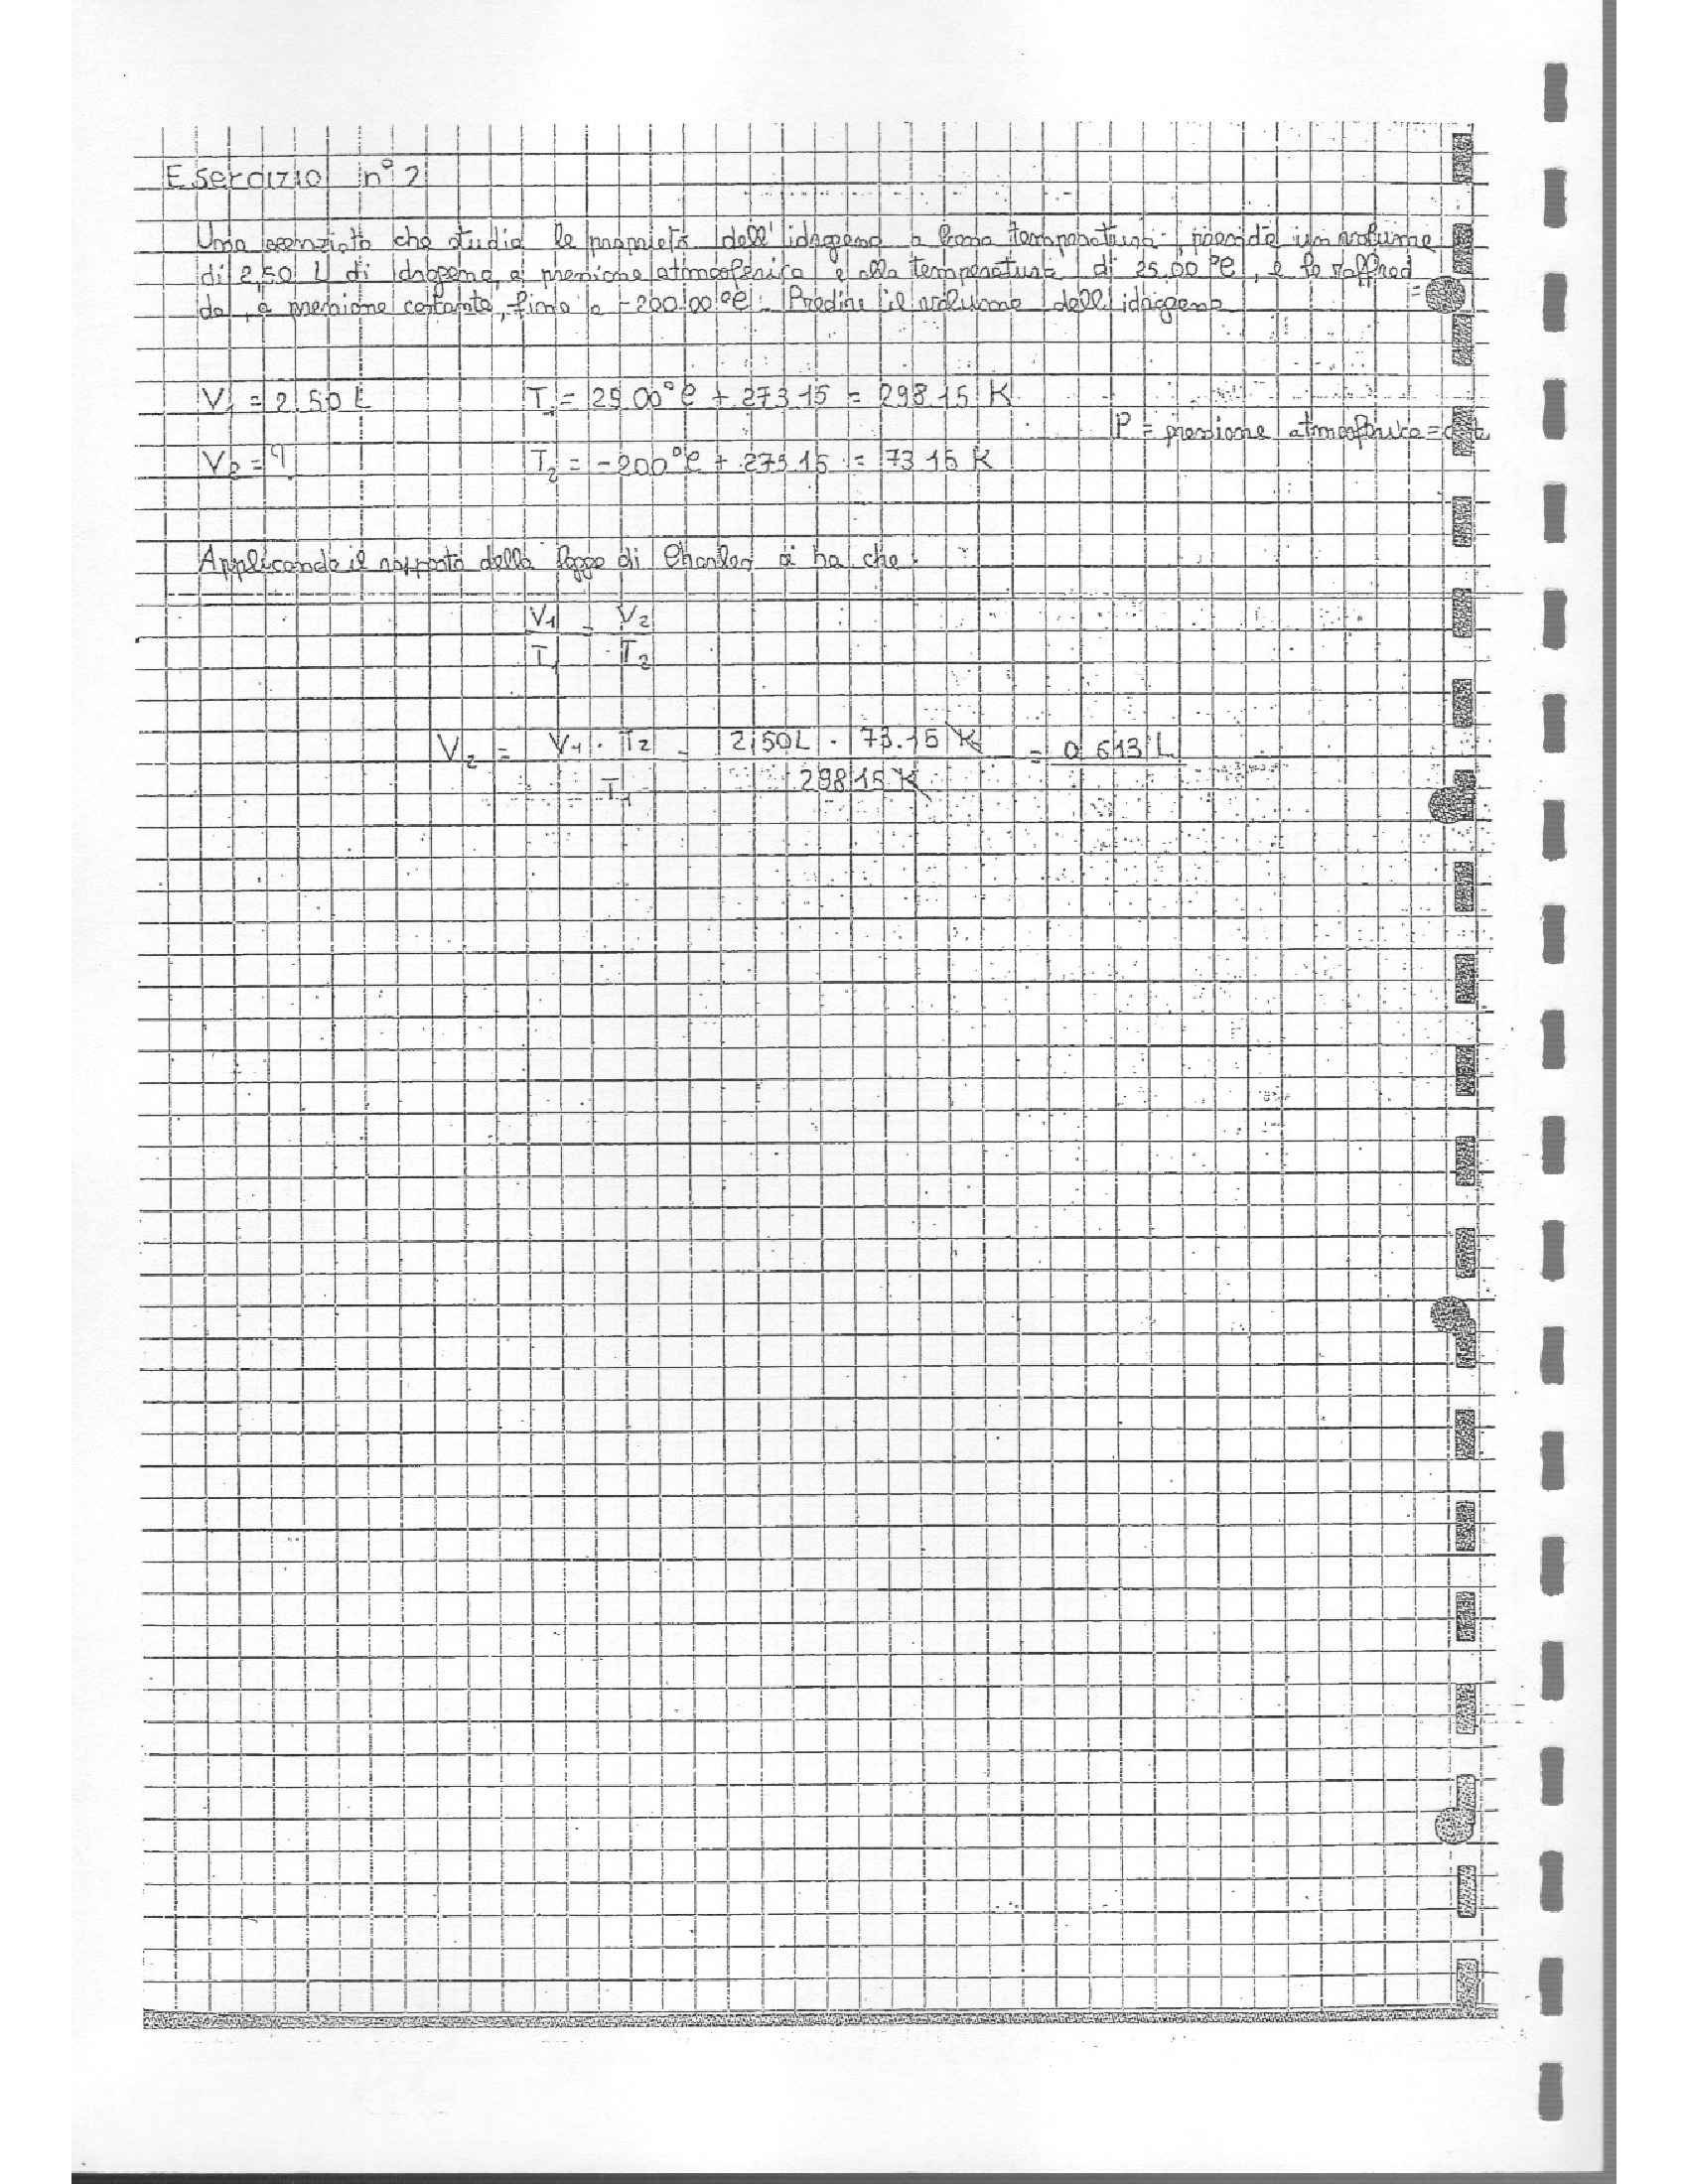 Esercizio n° 2
Uno scienziato che studia le proprietà dell'idrogeno a bassa temperatura, prende un volume
di 2,50 L di idrogeno, a pressione atmosferica e alla temperatura di 25.00 °C, e lo raffred
da, a pressione costante, fino a -200.00 °C. Predire il volume dell'idrogeno
V₁ = 2.50 L T₁ = 25.00°C + 273.15 = 298.15 K
P = pressione atmosferica = cost.
V₂ = ? T₂ = -200°C + 273.15 = 73.15 K
Applicando il rapporto della legge di Charles si ha che:
V₁ = V₂
T₁ T₂
V₂ = V₁ · T₂ = 2,50L · 73.15 K = 0.613 L
T₁ 298.15 K